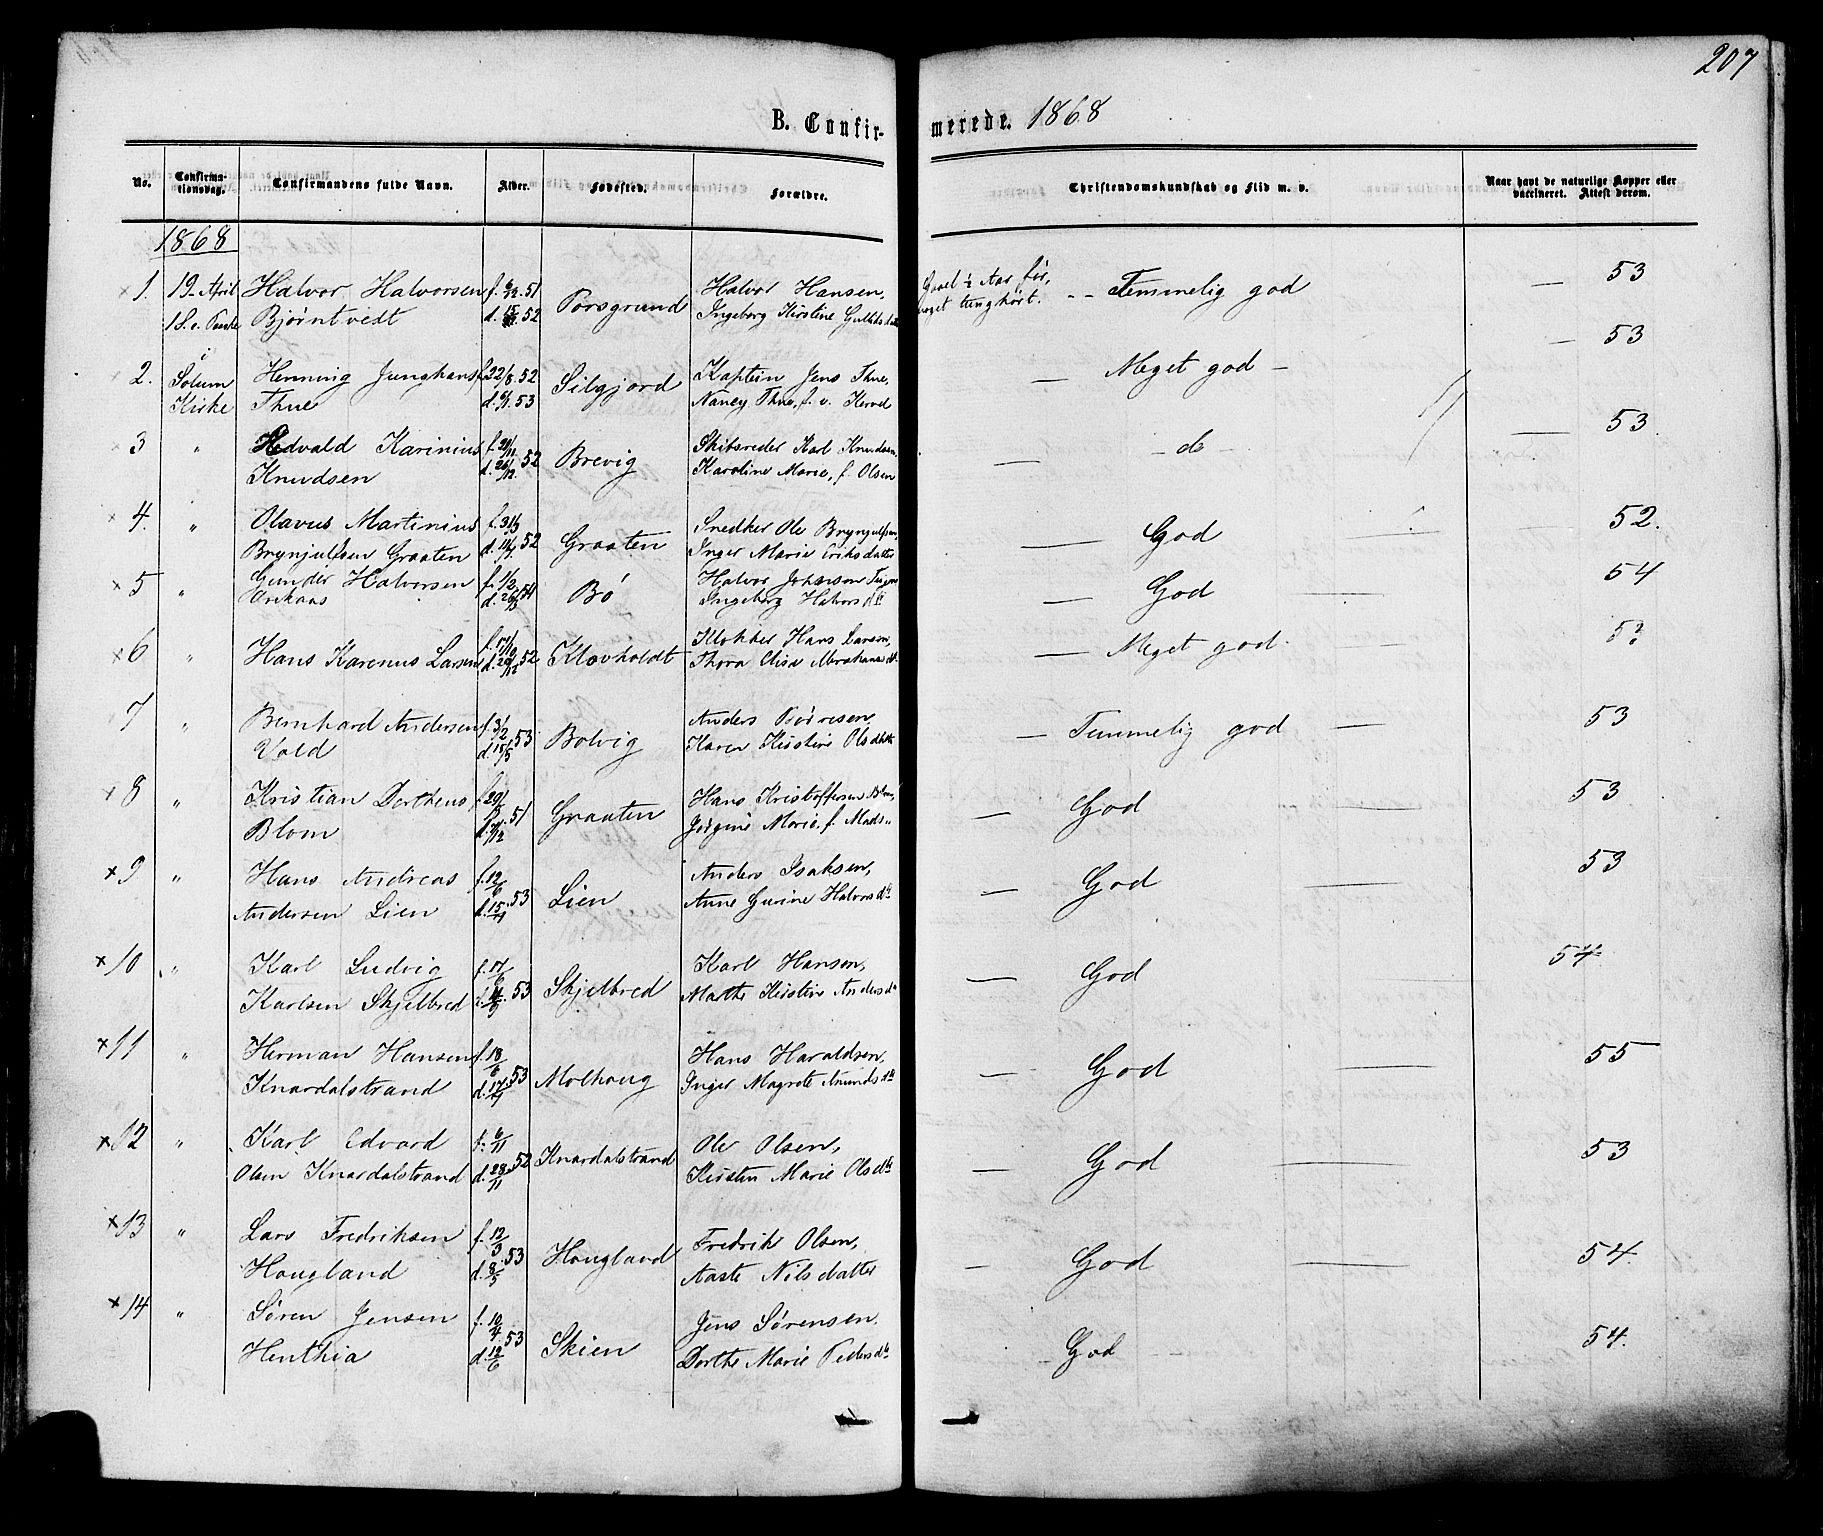 207
B. Confirmerede. 1868
No. Confirmationsdag. Confirmandens fulde Navn. Alder. Fødested. Forældre. Christendomskundskab og Flid m. v. Naar havt de naturlige Kopper eller vaccineret. Attest derom.
1868
1. 19 April Halvor Halvorsen f. 6/12 51 Porsgrund Halvor Hansen, Gaaet ½ Aar før, -- Temmelig god — 53
1 S. e. Paaske Bjørntvedt d. 52 Ingeborg Kirstine noget tunghørt.
2. i Solum Henning Junghans f. 22/8. 52 Silgjord Kaptein Jens Thue, — Meget god — 53
Kirke Thue d. 6/1. 53 Nancy Thue, f. v. Kervel
3 " Edvald Karinius f. 21/11. 52 Brevig Skibsreder Karl Knudsen, — do — 53
Knudsen d. 26/12. Karoline Marie, f. Olsen
4. " Olavus Martinius f. 31/3 52 Graaten Snedker Ole Brynjulfsen, — God 52.
Brynjulfsen Graaten d. 11/7. Inger Marie Eriksdatter
5 " Gunder Halvorsen f. 1/2 54 Bö Halvor Johnsen — God — 54
d. 26/3 Ingeborg Halvorsd
6 " Hans Karenus Larsen f. 17/10 52 Klovholdt Klokker Hans Larsen, — Meget god. 53
d. 26/12 Thora Elise Abrahamsdt.
7 " Bernhard Andersen f. 3/2 53 Bolvig Anders Börresen, — Temmelig god — 53
Vold d. 15/5 Karen Kirstine Olsdatter
8 " Kristian Dortheus f. 29/ 51 Graaten Hans Kristoffersen Blom, — God — 53
Blom d. /12 Jörgine Marie f. Mads"
9 " Hans Andreas f. 12/6 53 Lien Anders Isaksen, — God — 53
Andersen Lien d. 15/9 Anne Gurine Halvorsdt
10 " Karl Ludvig f. 17/6 53 Skjelbred Karl Hansen, — God — 54
Karlsen Skjelbred d. /9 Marthe Kirstine Andersdt
11 " Herman Hansen f. 18/6 53 Molhoug Hans Haraldsen, — God — 55
Knardalstrand d. 17/9 Inger Magrete Amundsdt
12 " Karl Edvard f. 6/11 52 Knardalstrand Ole Olsen, — God — 53
Olsen Knardalstrand d. 28/11 Kirsten Marie Olsdt
13 " Lars Fredriksen f. 12/3 53 Hougland Fredrik Olsen, — God — 54.
Hougland d. 8/5 Aaste Nilsdatter
14 " Søren Jensen f. 10/4 53 Skien Jens Sørensen. — God — 54.
Henthia d. 12/6 Dorthe Marie Pedersdt